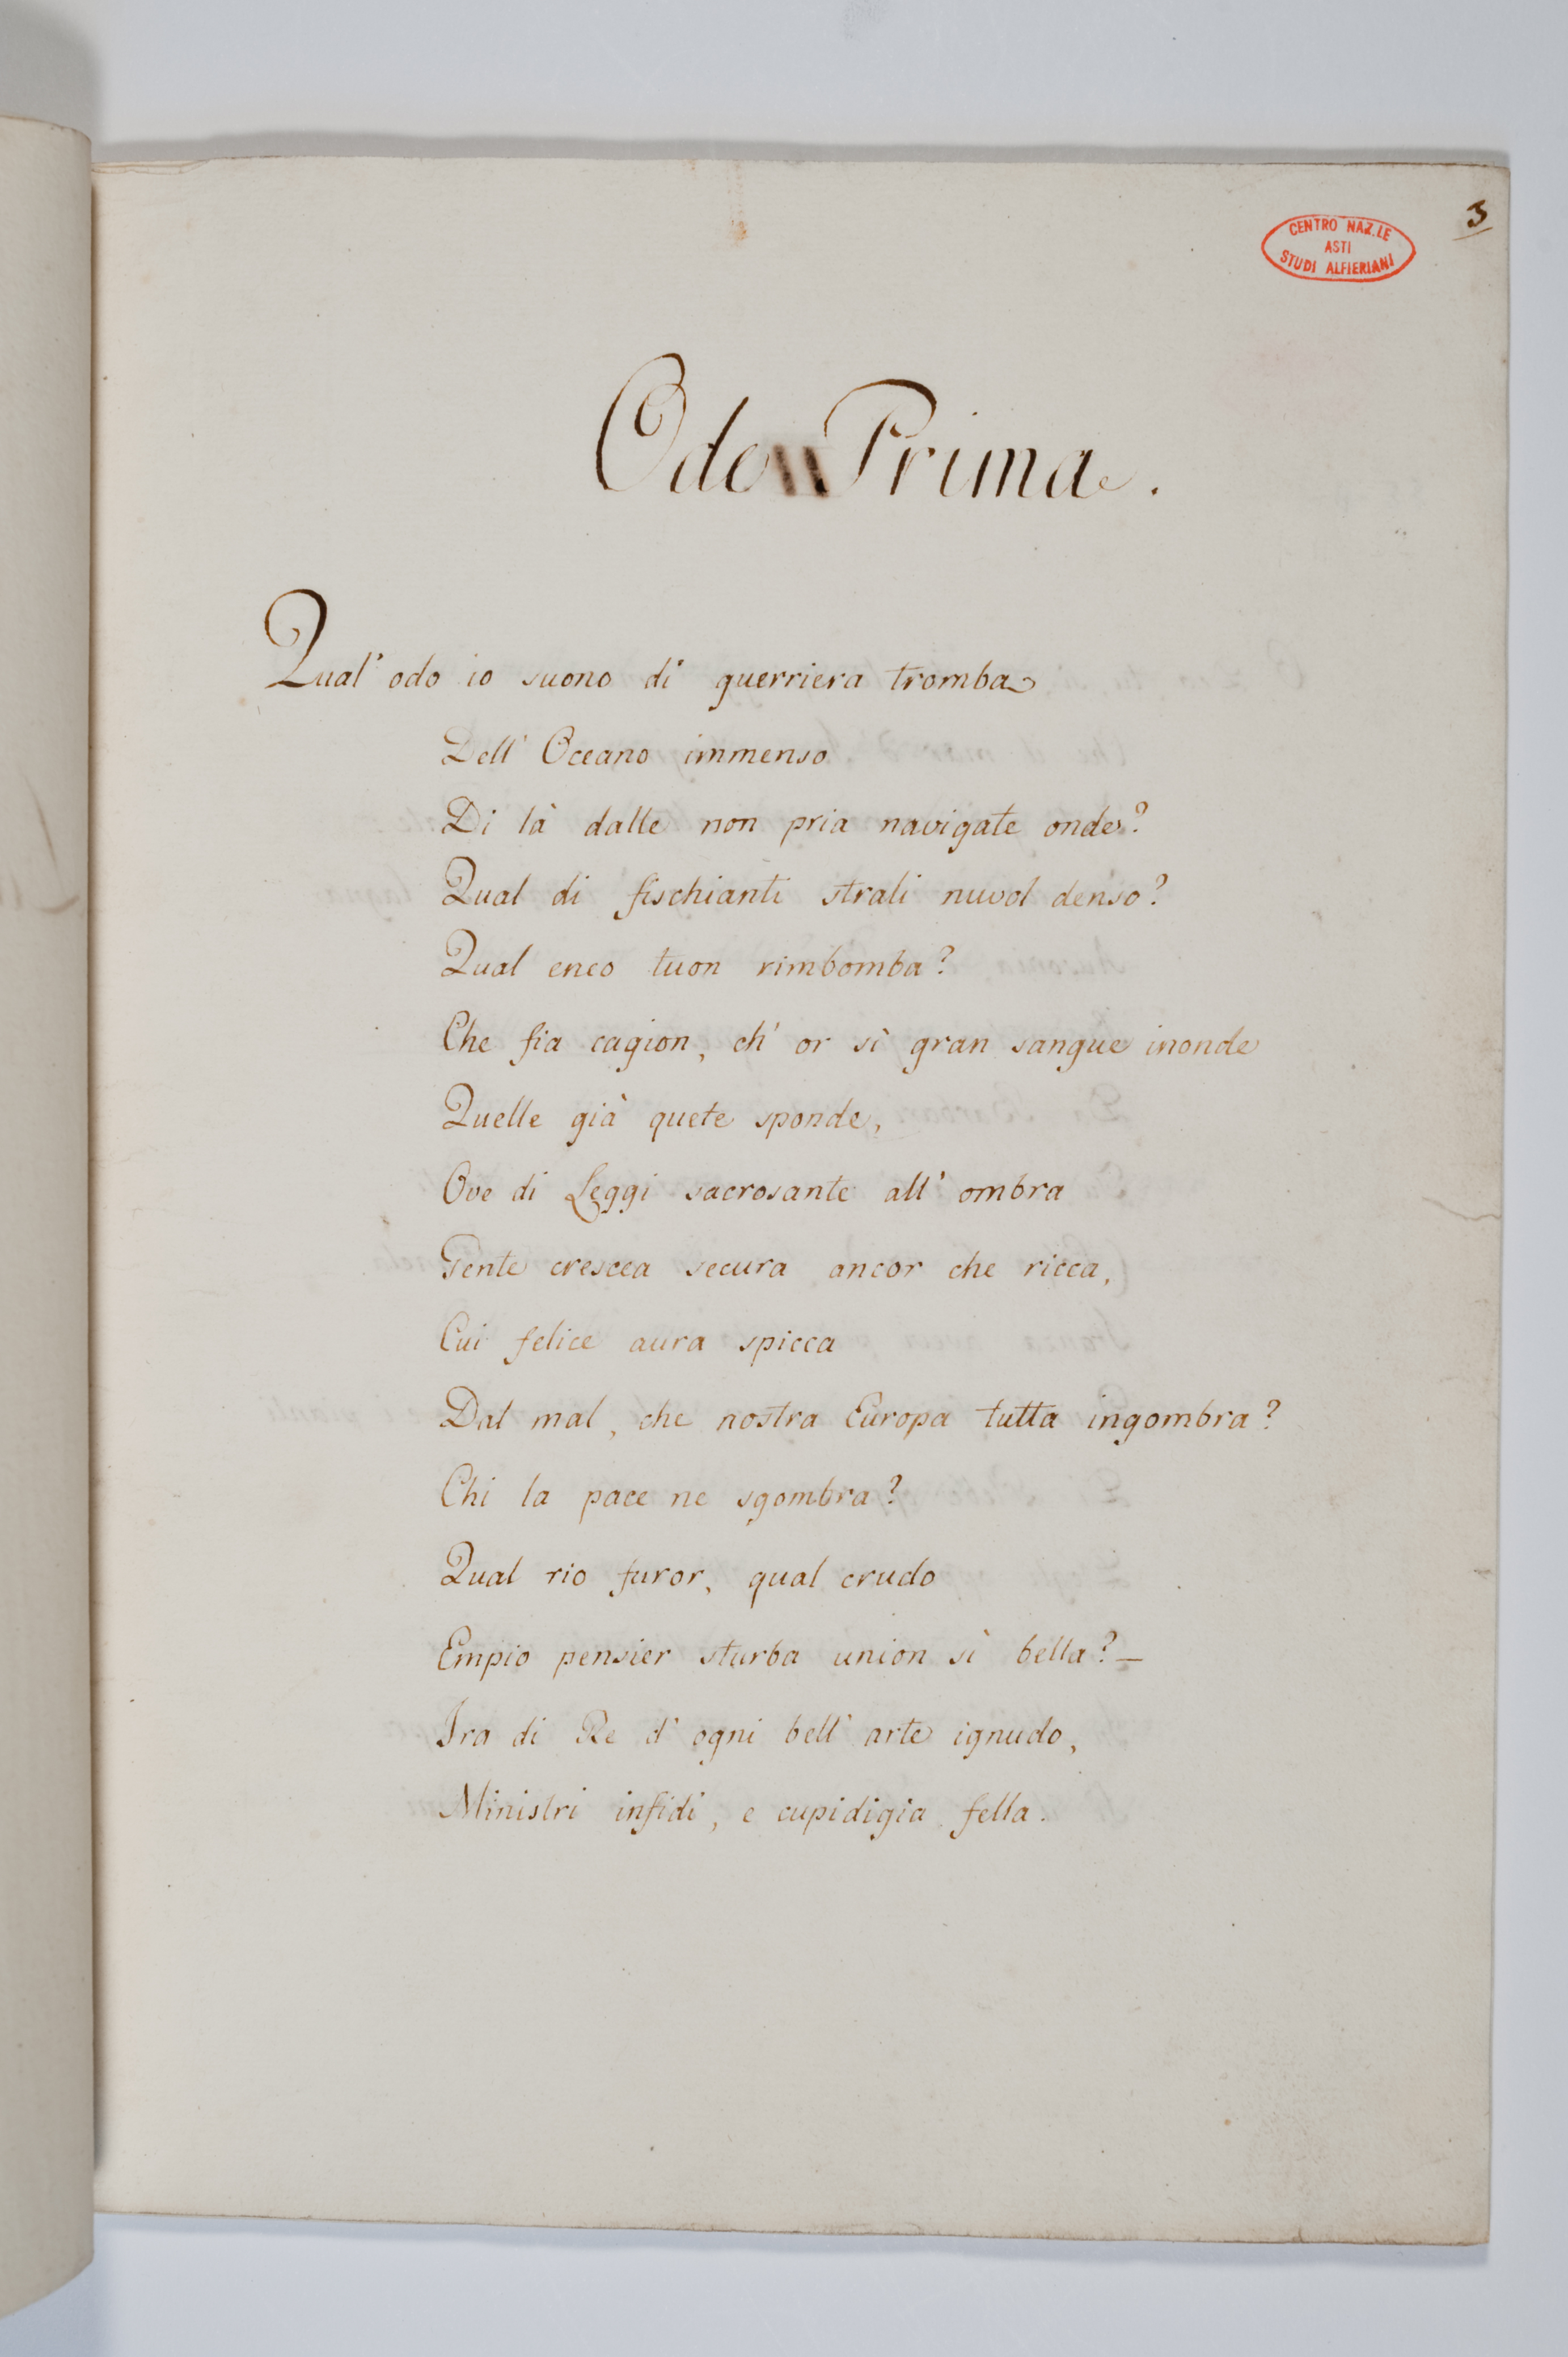 3
CENTRO NAZ.LE
ASTI
STUDI ALFIERIANI
Ode Prima.
Qual' odo io suono di guerriera tromba
Dell' Oceano immenso
Di là dalle non pria navigate onde?
Qual di fischianti strali nuvol denso?
Qual eneo tuon rimbomba?
Che fia cagion, ch' or sì gran sangue inonde
Quelle già quete sponde,
Ove di Leggi sacrosante all' ombra
Gente crescea secura ancor che ricca,
Cui felice aura spicca
Dal mal, che nostra Europa tutta ingombra?
Chi la pace ne sgombra?
Qual rio furor, qual crudo
Empio pensier sturba union sì bella? —
Ira di Re d' ogni bell' arte ignudo,
Ministri infidi, e cupidigia fella.